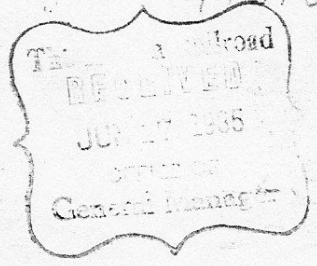 The Railroad
RECEIVED
JUN 17 1935
OFFICE OF
General Manager